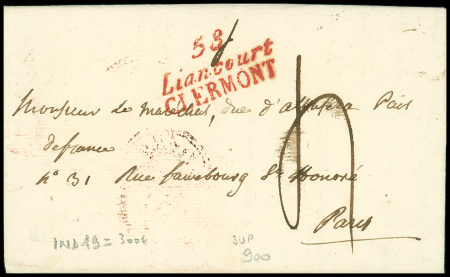 58
Liancourt
CLERMONT
Monsieur Le marechal, duc d'albufera Pair
defrance
n° 31 Rue faubourg St honoré
Paris
IND 19 = 300€
SUP
900